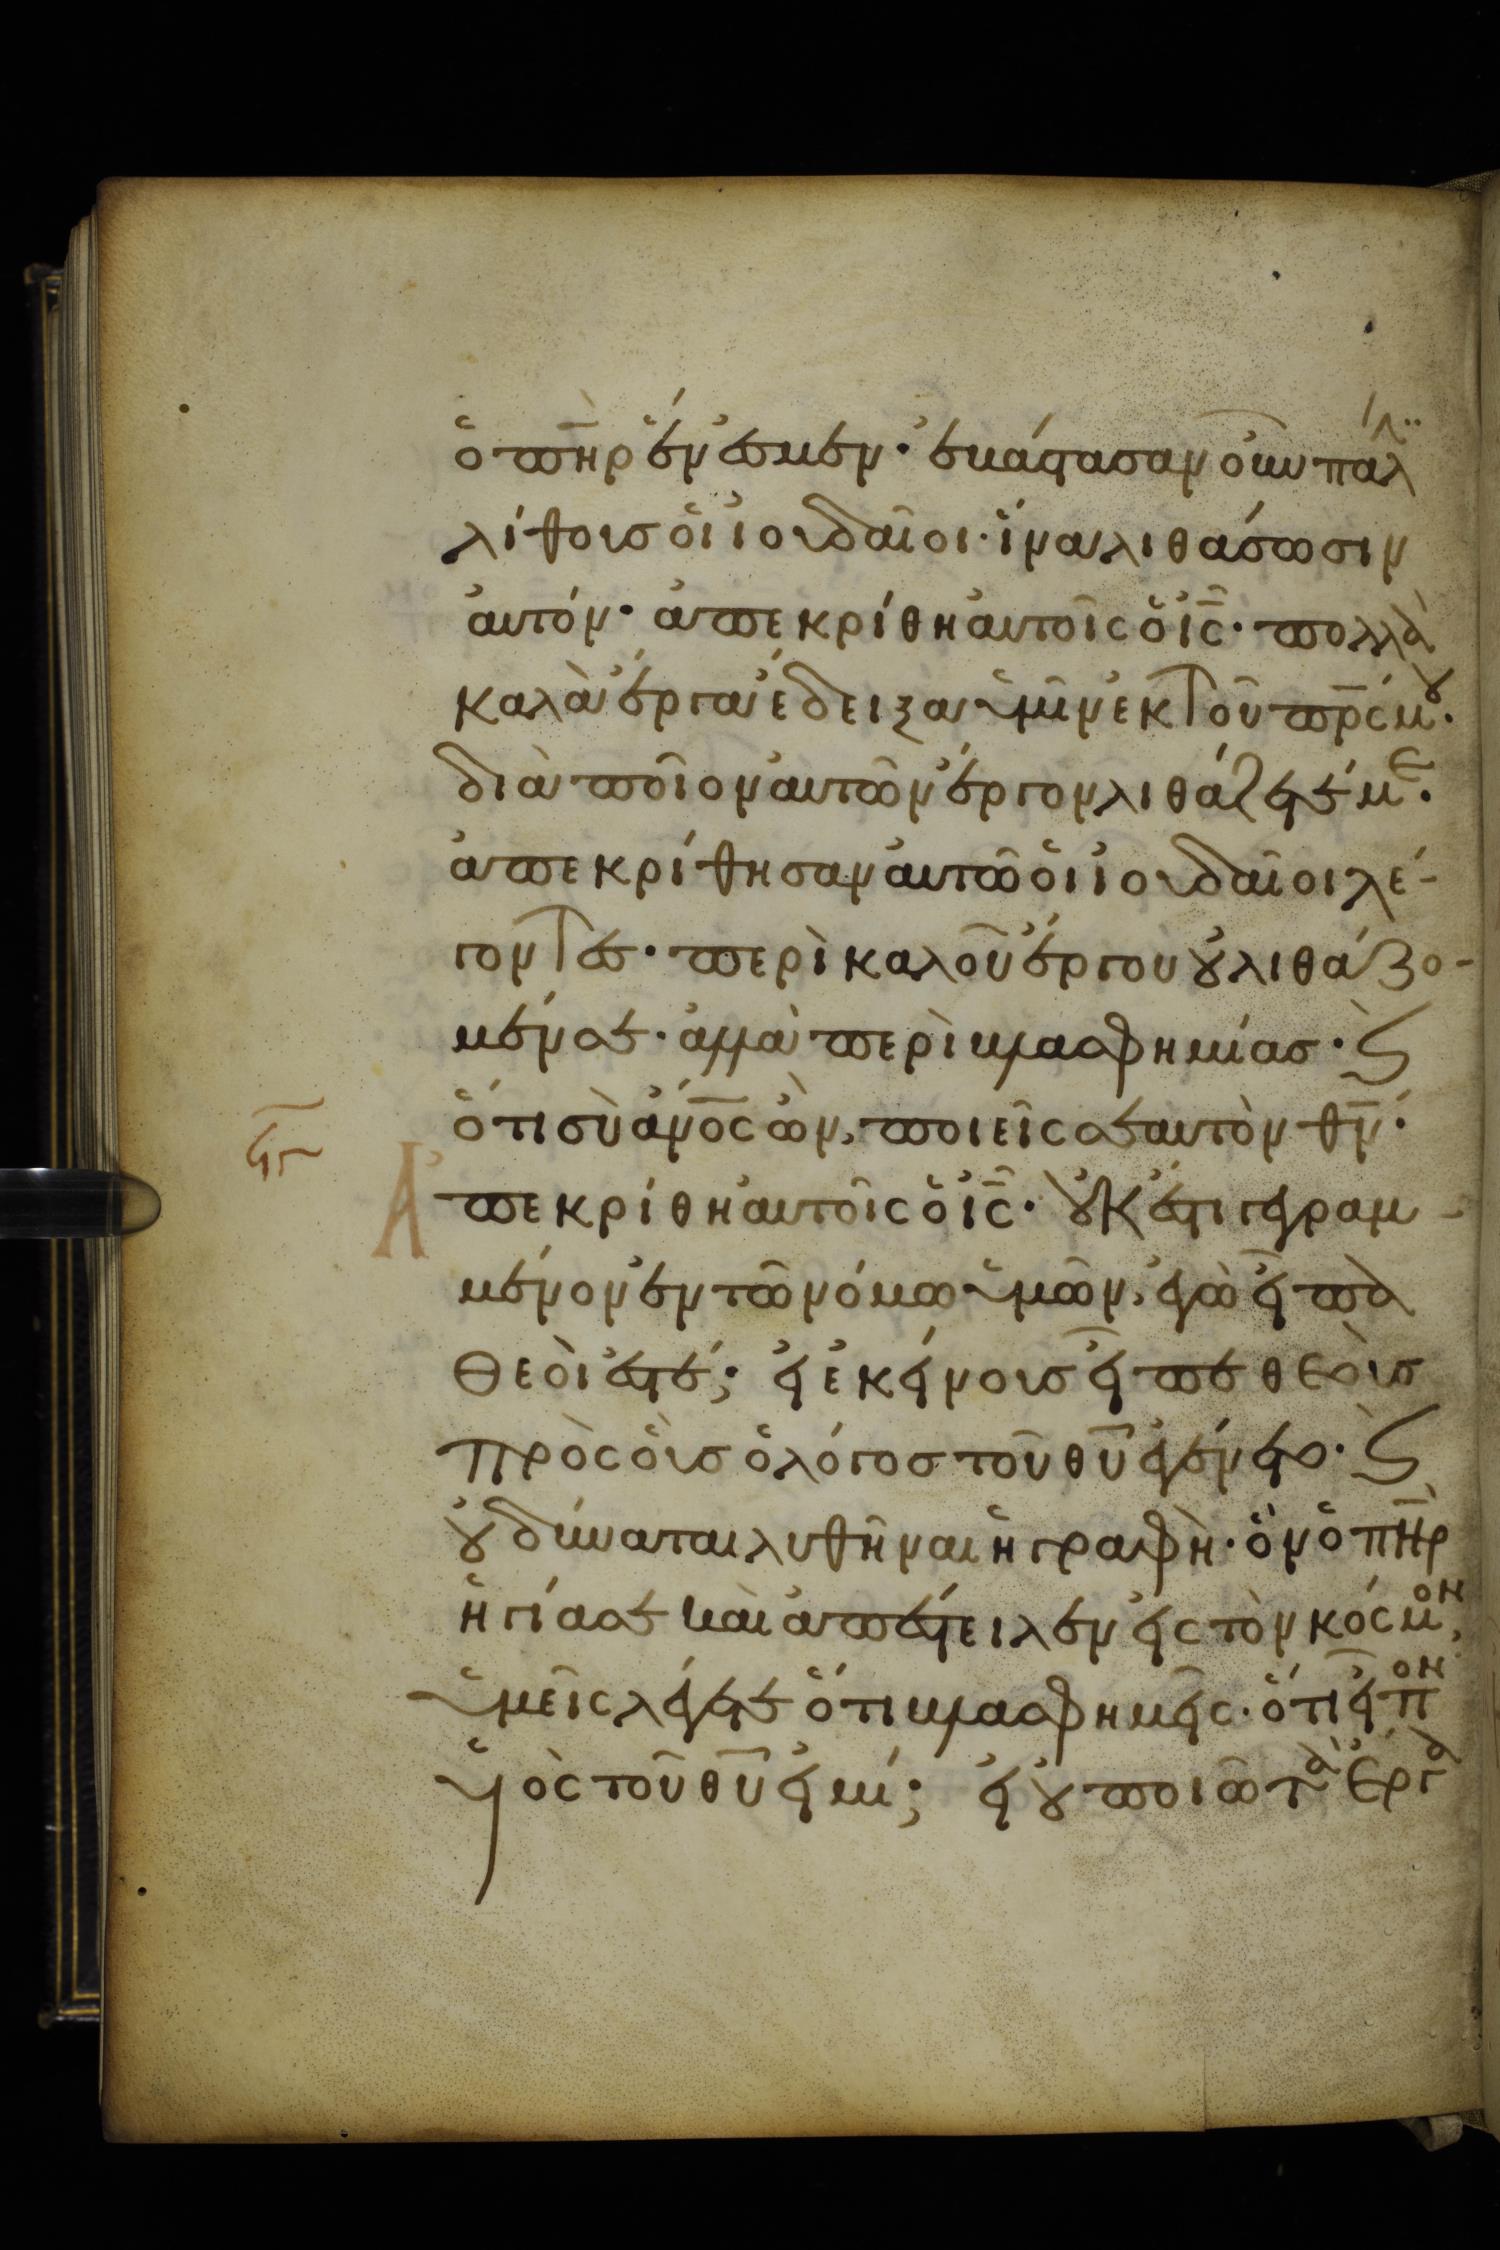 ὁ πη̅ρ ἕν ἐσμεν· ἐβάστασαν οὖν παλιν
λίθους οἱ ἰουδαῖοι· ἵνα λιθάσωσιν
ἀυτόν· ἀπεκρίθη ἀυτοῖς ὁ ι̅ς̅· πολλὰ
καλὰ ἔργα ἔδειξα ὑμῖν ἐκ τοῦ πρ̅ς μου·
διὰ ποῖον ἀυτῶν ἔργον λιθάζετέ με·
ἀπεκρίθησαν ἀυτῶ οἱ ἰουδαῖοι λέ-
γοντες· περὶ καλοῦ ἔργου οὐ λιθάζο-
μέν σε· ἀλλὰ περὶ βλασφημίας· ς
ὅτι σὺ ἀν̅ο̅ς ὢν, ποιεῖς σεαυτὸν θν̅·
Ἀπεκρίθη ἀυτοῖς ὁ ι̅ς̅· οὐκ ἔστι γεγραμ-
μένον ἐν τῶ νόμω ὑμῶν, ἐγὼ εἶπα
θεοί ἐστέ; εἰ ἐκείνους εἶπε θεοὺς
πρὸς οὓς ὁ λόγος τοῦ θυ̅ ἐγένετο· ς
οὐ δύναται λυθῆναι ἡ γραφὴ· ὃν ὁ πη̅ρ
ἡγίασε καὶ ἀπέστειλεν εἰς τὸν κόσμον,
ὑμεῖς λέγετε ὅτι βλασφημεῖς· ὅτι εἶπον
υἱὸς τοῦ θυ̅ εἰμί; εἰ οὐ ποιῶ τὰ ἔργα